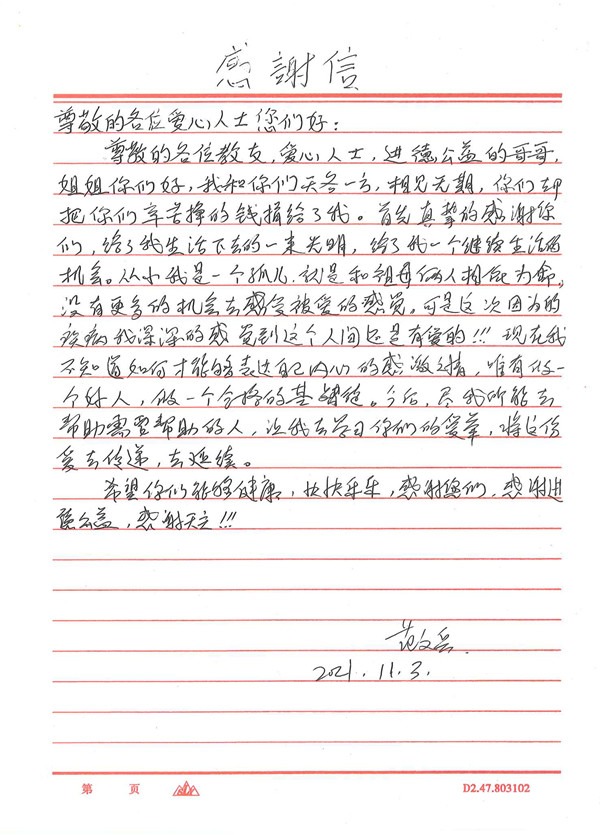 感謝信
尊敬的各位爱心人士您们好：
尊敬的各位教友，爱心人士，进德公益的哥哥，
姐姐你们好，我和你们天各一方，相见无期，你们却
把你们辛苦挣的钱捐给了我。首先真挚的感谢你
们，给了我生活下去的一束光明，给了我一个继续生活的
机会。从小我是一个孤儿，就是和祖母俩人相依为命，
没有更多的机会去感受被爱的感觉。可是这次因为的
疾病我深深的感觉到这个人间还是有爱的!!! 现在我
不知道如何才能够表达自己内心的感激之情，唯有做一
个好人，做一个合格的基督徒。今后，尽我所能去
帮助需要帮助的人，让我去学习你们的爱举，将这份
爱去传递，去延续。
希望你们能够健康，快快乐乐，感谢您们，感谢进
德公益，感谢天主!!!
2021.11.3.
第 页
D2.47.803102